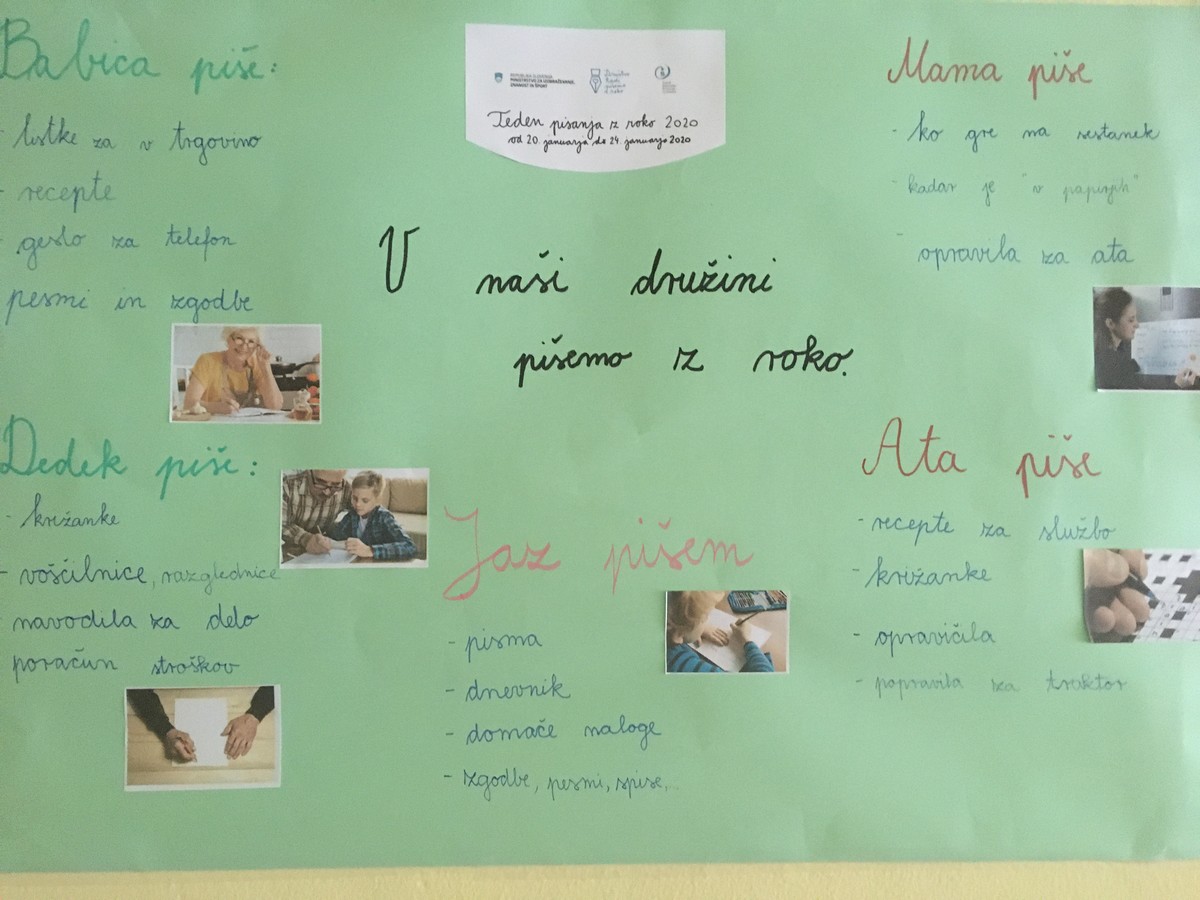 Babica piše:
- listke za v trgovino
- recepte
- geslo za telefon
pesmi in zgodbe
Dedek piše:
- križanke
- voščilnice, razglednice
navodila za delo
poračun stroškov
REPUBLIKA SLOVENIJA
MINISTRSTVO ZA IZOBRAŽEVANJE,
ZNANOST IN ŠPORT
Teden pisanja z roko 2020
od 20. januarja do 24. januarja 2020
V naši družini
pišemo z roko.
Jaz pišem
- pisma
- dnevnik
- domače naloge
- zgodbe, pesmi, spise,...
Mama piše
- ko gre na sestanek
- kadar je "v papirjih"
- opravila za ata
Ata piše
- recepte za službo
- križanke
- opravičila
- popravila za traktor